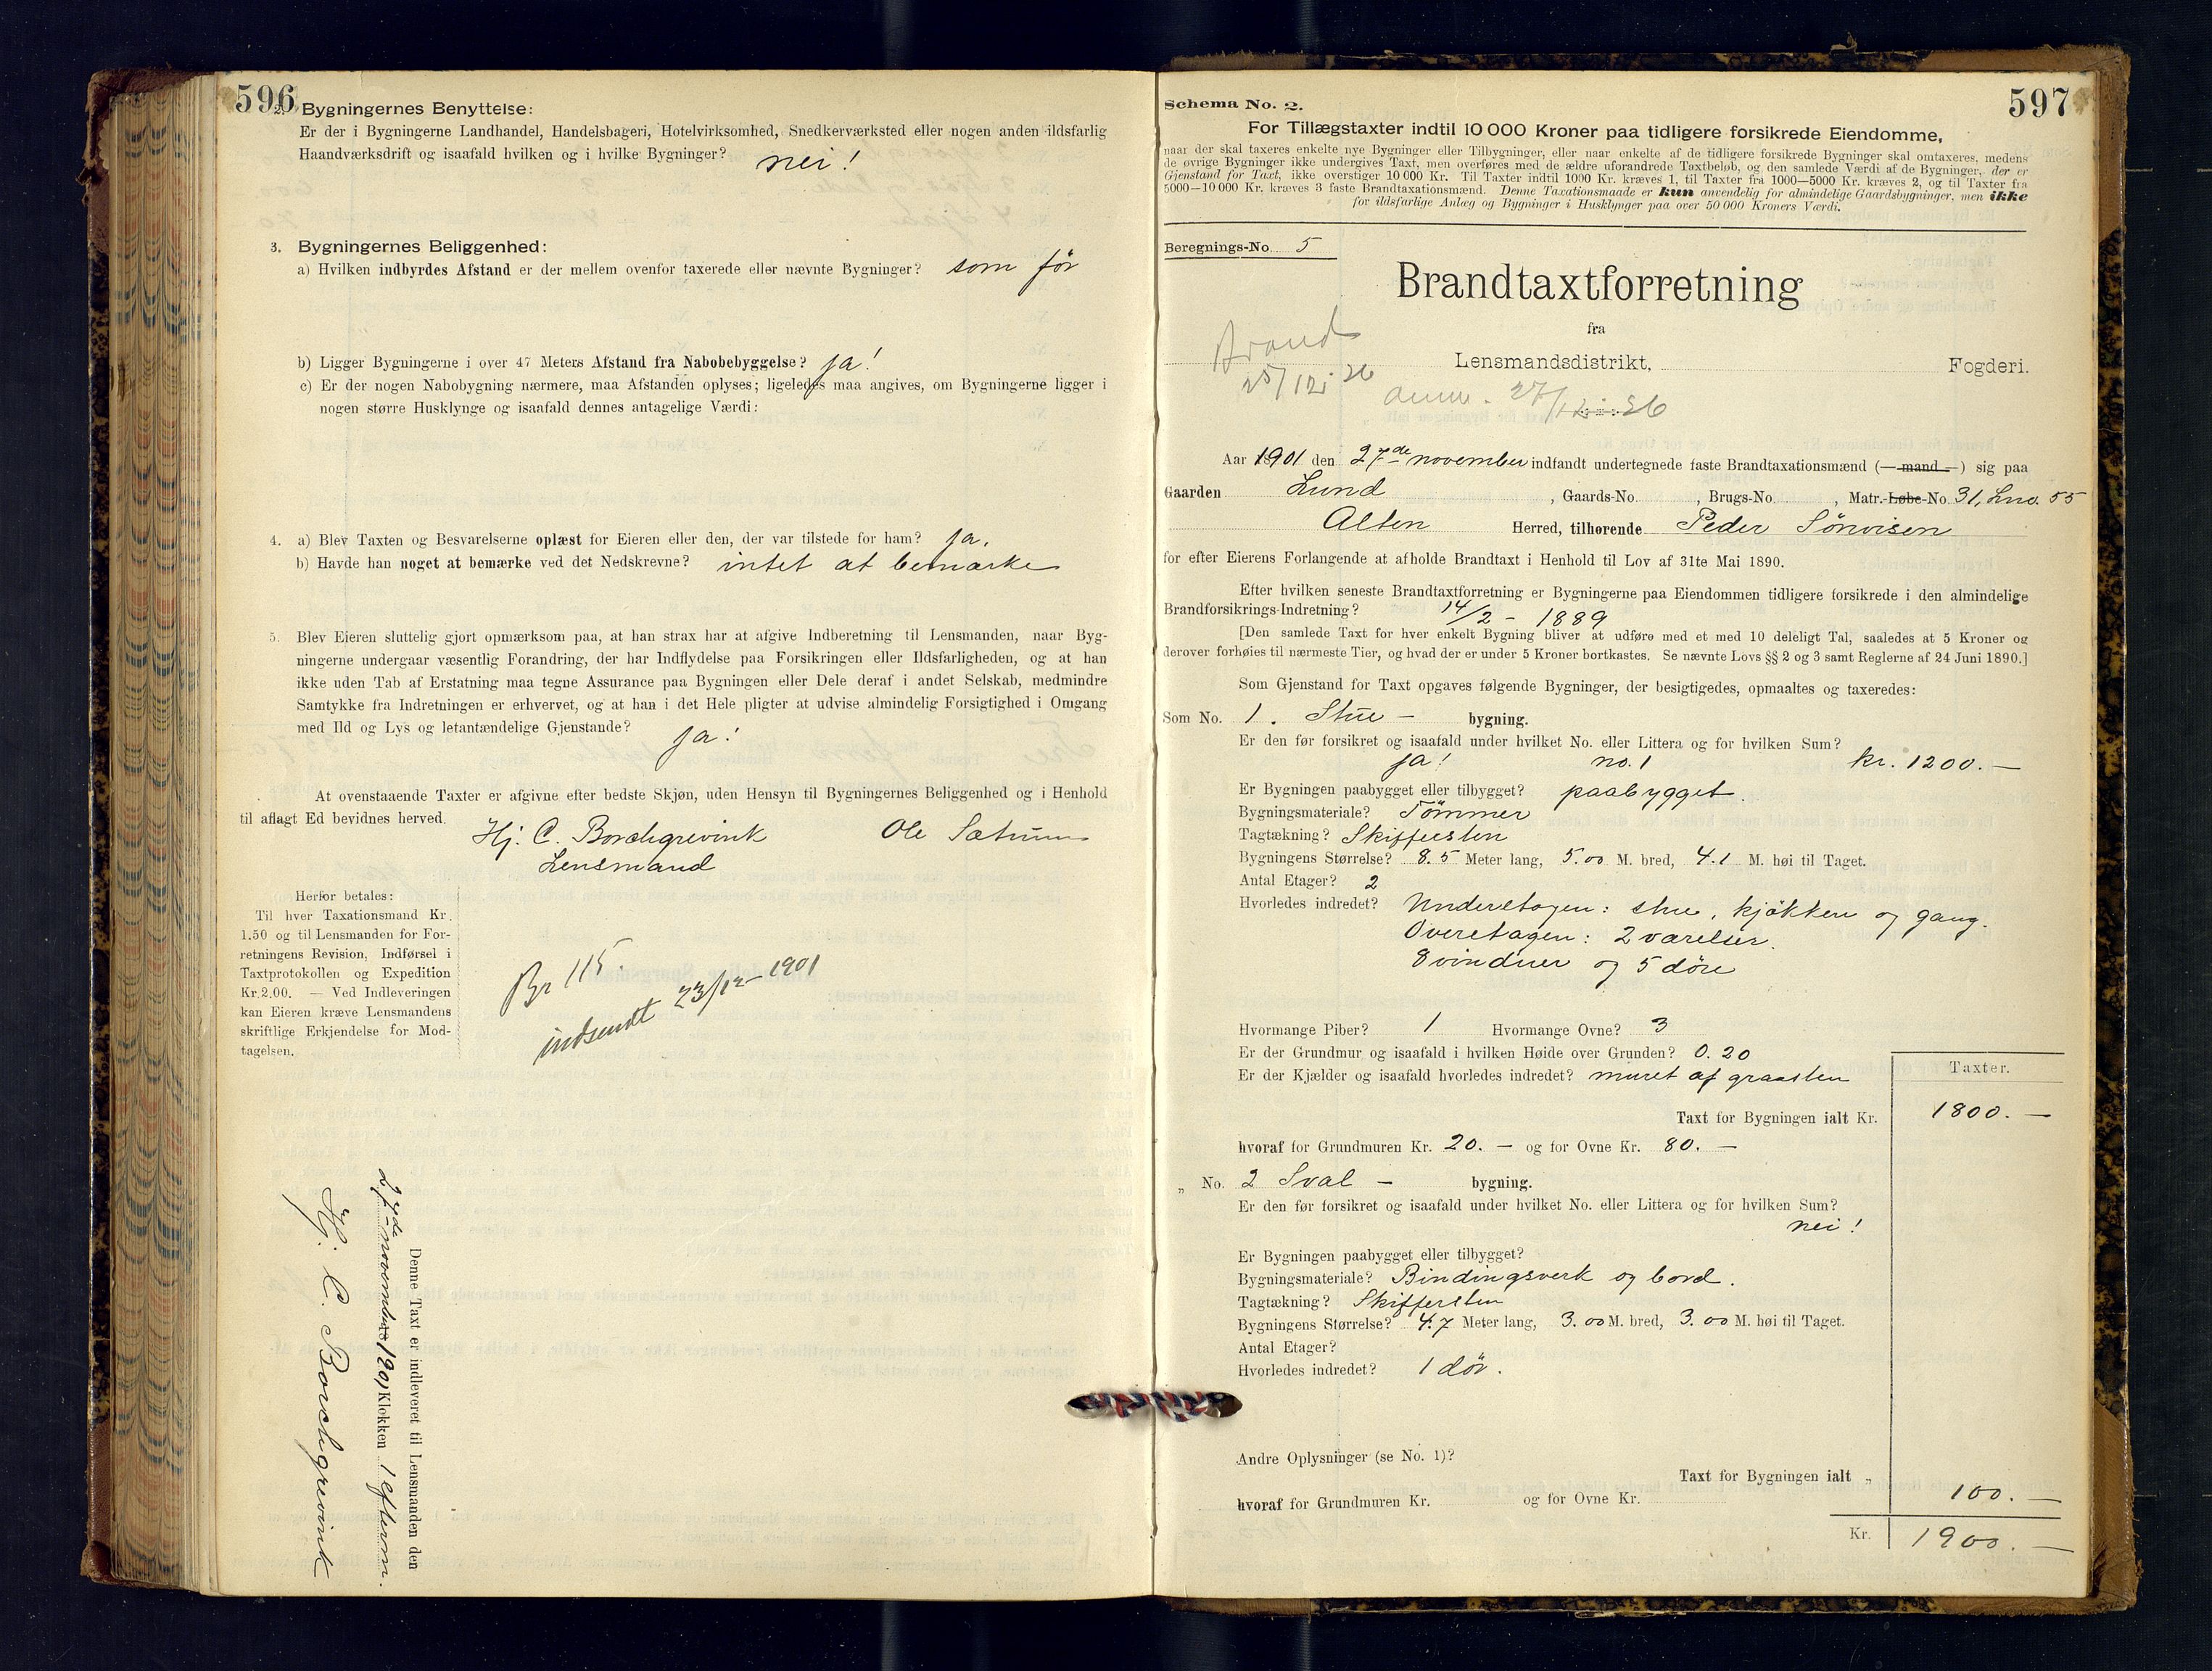 596
2. Bygningernes Benyttelse:
Er der i Bygningerne Landhandel, Handelsbageri, Hotelvirksomhed, Snedkerværksted eller nogen anden ildsfarlig
Haandværksdrift og isaafald hvilken og i hvilke Bygninger? nei!
3. Bygningernes Beliggenhed:
a) Hvilken indbyrdes Afstand er der mellem ovenfor taxerede eller nævnte Bygninger? som før
b) Ligger Bygningerne i over 47 Meters Afstand fra Nabobebyggelse? ja!
c) Er der nogen Nabobygning nærmere, maa Afstanden oplyses; ligeledes maa angives, om Bygningerne ligger i
nogen større Husklynge og isaafald dennes antagelige Værdi:
4. a) Blev Taxten og Besvarelserne oplæst for Eieren eller den, der var tilstede for ham? ja.
b) Havde han noget at bemærke ved det Nedskrevne? intet at bemærke
5. Blev Eieren sluttelig gjort opmærksom paa, at han strax har at afgive Indberetning til Lensmanden, naar Byg-
ningerne undergaar væsentlig Forandring, der har Indflydelse paa Forsikringen eller Ildsfarligheden, og at han
ikke uden Tab af Erstatning maa tegne Assurance paa Bygningen eller Dele deraf i andet Selskab, medmindre
Samtykke fra Indretningen er erhvervet, og at han i det Hele pligter at udvise almindelig Forsigtighed i Omgang
med Ild og Lys og letantændelige Gjenstande? ja!
At ovenstaaende Taxter er afgivne efter bedste Skjøn, uden Hensyn til Bygningernes Beliggenhed og i Henhold
til aflagt Ed bevidnes herved.
Hj. C. Borchgrevink Ole Sætrum
Lensmand
Herfor betales:
Til hver Taxationsmand Kr.
1.50 og til Lensmanden for For-
retningens Revision, Indførsel i
Taxtprotokollen og Expedition
Kr. 2.00. — Ved Indleveringen
kan Eieren kræve Lensmandens
skriftlige Erkjendelse for Mod-
tagelsen.
Br 115.
indsendt 23/12 1901
Denne Taxt er indleveret til Lensmanden den
27de november 1901 Klokken 1 efterm.
Hj. C. Borchgrevink
Schema No. 2. 597
For Tillægstaxter indtil 10 000 Kroner paa tidligere forsikrede Eiendomme,
naar der skal taxeres enkelte nye Bygninger eller Tilbygninger, eller naar enkelte af de tidligere forsikrede Bygninger skal omtaxeres, medens
de øvrige Bygninger ikke undergives Taxt, men overføres med de ældre uforandrede Taxtbeløb, og den samlede Værdi af de Bygninger, der er
Gjenstand for Taxt, ikke overstiger 10 000 Kr. Til Taxter indtil 1000 Kr. kræves 1, til Taxter fra 1000—5000 Kr. kræves 2, og til Taxter fra
5000—10 000 Kr. kræves 3 faste Brandtaxationsmænd. Denne Taxationsmaade er kun anvendelig for almindelige Gaardsbygninger, men ikke
for ildsfarlige Anlæg og Bygninger i Husklynger paa over 50 000 Kroners Værdi.
Beregnings-No. 5
Brandtaxtforretning
fra
Lensmandsdistrikt, Fogderi.
Brand
25/12 26 anm. 27/12 26
Aar 1901 den 27de november indfandt undertegnede faste Brandtaxationsmænd (— mand —) sig paa
Gaarden Lund, Gaards-No. , Brugs-No. , Matr.-Løbe-No. 31, Lno. 55
Alten Herred, tilhørende Peder Sørvisen
for efter Eierens Forlangende at afholde Brandtaxt i Henhold til Lov af 31te Mai 1890.
Efter hvilken seneste Brandtaxtforretning er Bygningerne paa Eiendommen tidligere forsikrede i den almindelige
Brandforsikrings-Indretning? 14/2 - 1889
[Den samlede Taxt for hver enkelt Bygning bliver at udføre med et med 10 deleligt Tal, saaledes at 5 Kroner og
derover forhøies til nærmeste Tier, og hvad der er under 5 Kroner bortkastes. Se nævnte Lovs §§ 2 og 3 samt Reglerne af 24 Juni 1890.]
Som Gjenstand for Taxt opgaves følgende Bygninger, der besigtigedes, opmaaltes og taxeredes:
Som No. 1. Stue - bygning.
Er den før forsikret og isaafald under hvilket No. eller Littera og for hvilken Sum?
ja! no. 1 kr. 1200. —
Er Bygningen paabygget eller tilbygget? paabygget.
Bygningsmateriale? Tømmer
Tagtækning? Skiffersten
Bygningens Størrelse? 8.5 Meter lang, 5.00 M. bred, 4.1 M. høi til Taget.
Antal Etager? 2
Hvorledes indredet? Underetagen: stue, kjøkken og gang.
Overetagen: 2 værelser.
8 vinduer og 5 døre
Hvormange Piber? 1 Hvormange Ovne? 3
Er der Grundmur og isaafald i hvilken Høide over Grunden? 0.20
Er der Kjælder og isaafald hvorledes indredet? muret af graasten
Taxter.
Taxt for Bygningen ialt Kr. 1800. —
hvoraf for Grundmuren Kr. 20. — og for Ovne Kr. 80. —
„ No. 2 Sval - bygning.
Er den før forsikret og isaafald under hvilket No. eller Littera og for hvilken Sum?
nei!
Er Bygningen paabygget eller tilbygget?
Bygningsmateriale? Bindingsverk og bord.
Tagtækning? Skiffersten
Bygningens Størrelse? 4.7 Meter lang, 3.00 M. bred, 3.00 M. høi til Taget.
Antal Etager?
Hvorledes indredet? 1 dør.
Andre Oplysninger (se No. 1)?
Taxt for Bygningen ialt „ 100. —
hvoraf for Grundmuren Kr. og for Ovne Kr.
Kr. 1900. —